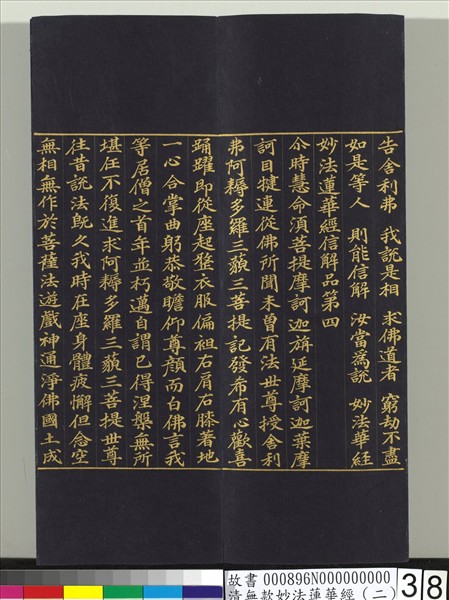 告舍利弗　我說是相　求佛道者　窮劫不盡
如是等人　則能信解　汝當為說　妙法華經
妙法蓮華經信解品第四
尒時慧命湏菩提摩訶迦旃延摩訶迦葉摩
訶目揵連從佛所聞未曾有法世尊授舍利
弗阿耨多羅三藐三菩提記發希有心歡喜
踊躍即從座起整衣服偏袒右肩右膝著地
一心合掌曲躬恭敬瞻仰尊顏而白佛言我
等居僧之首年並朽邁自謂已得涅槃無所
堪任不復進求阿耨多羅三藐三菩提世尊
往昔說法旣久我時在座身體疲懈但念空
無相無作於菩薩法遊戲神通淨佛國土成
故書 000896N000000000
清無款妙法蓮華經（二）
38